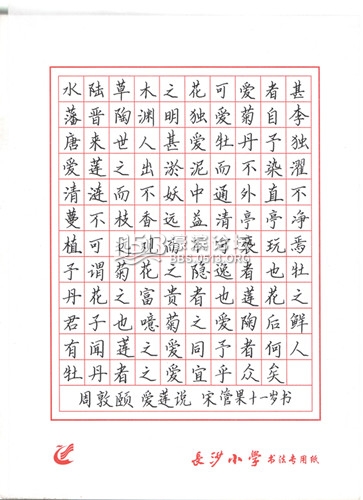 水陆草木之花可爱者甚
藩晋陶渊明独爱菊自李
唐来世人甚爱牡丹予独
爱莲之出淤泥而不染濯
清涟而不妖中通外直不
蔓不枝香远益清亭亭净
植可远观而不可亵玩焉
予谓菊花之隐逸者也牡
丹花之富贵者也莲花之
君子也噫菊之爱陶后鲜
有闻莲之爱同予者何人
牡丹者之爱宜乎众矣
周敦颐 爱莲说 宋管果十一岁书
长沙小学 书法专用纸
0513 濠滨论坛
BBS.0513.ORG